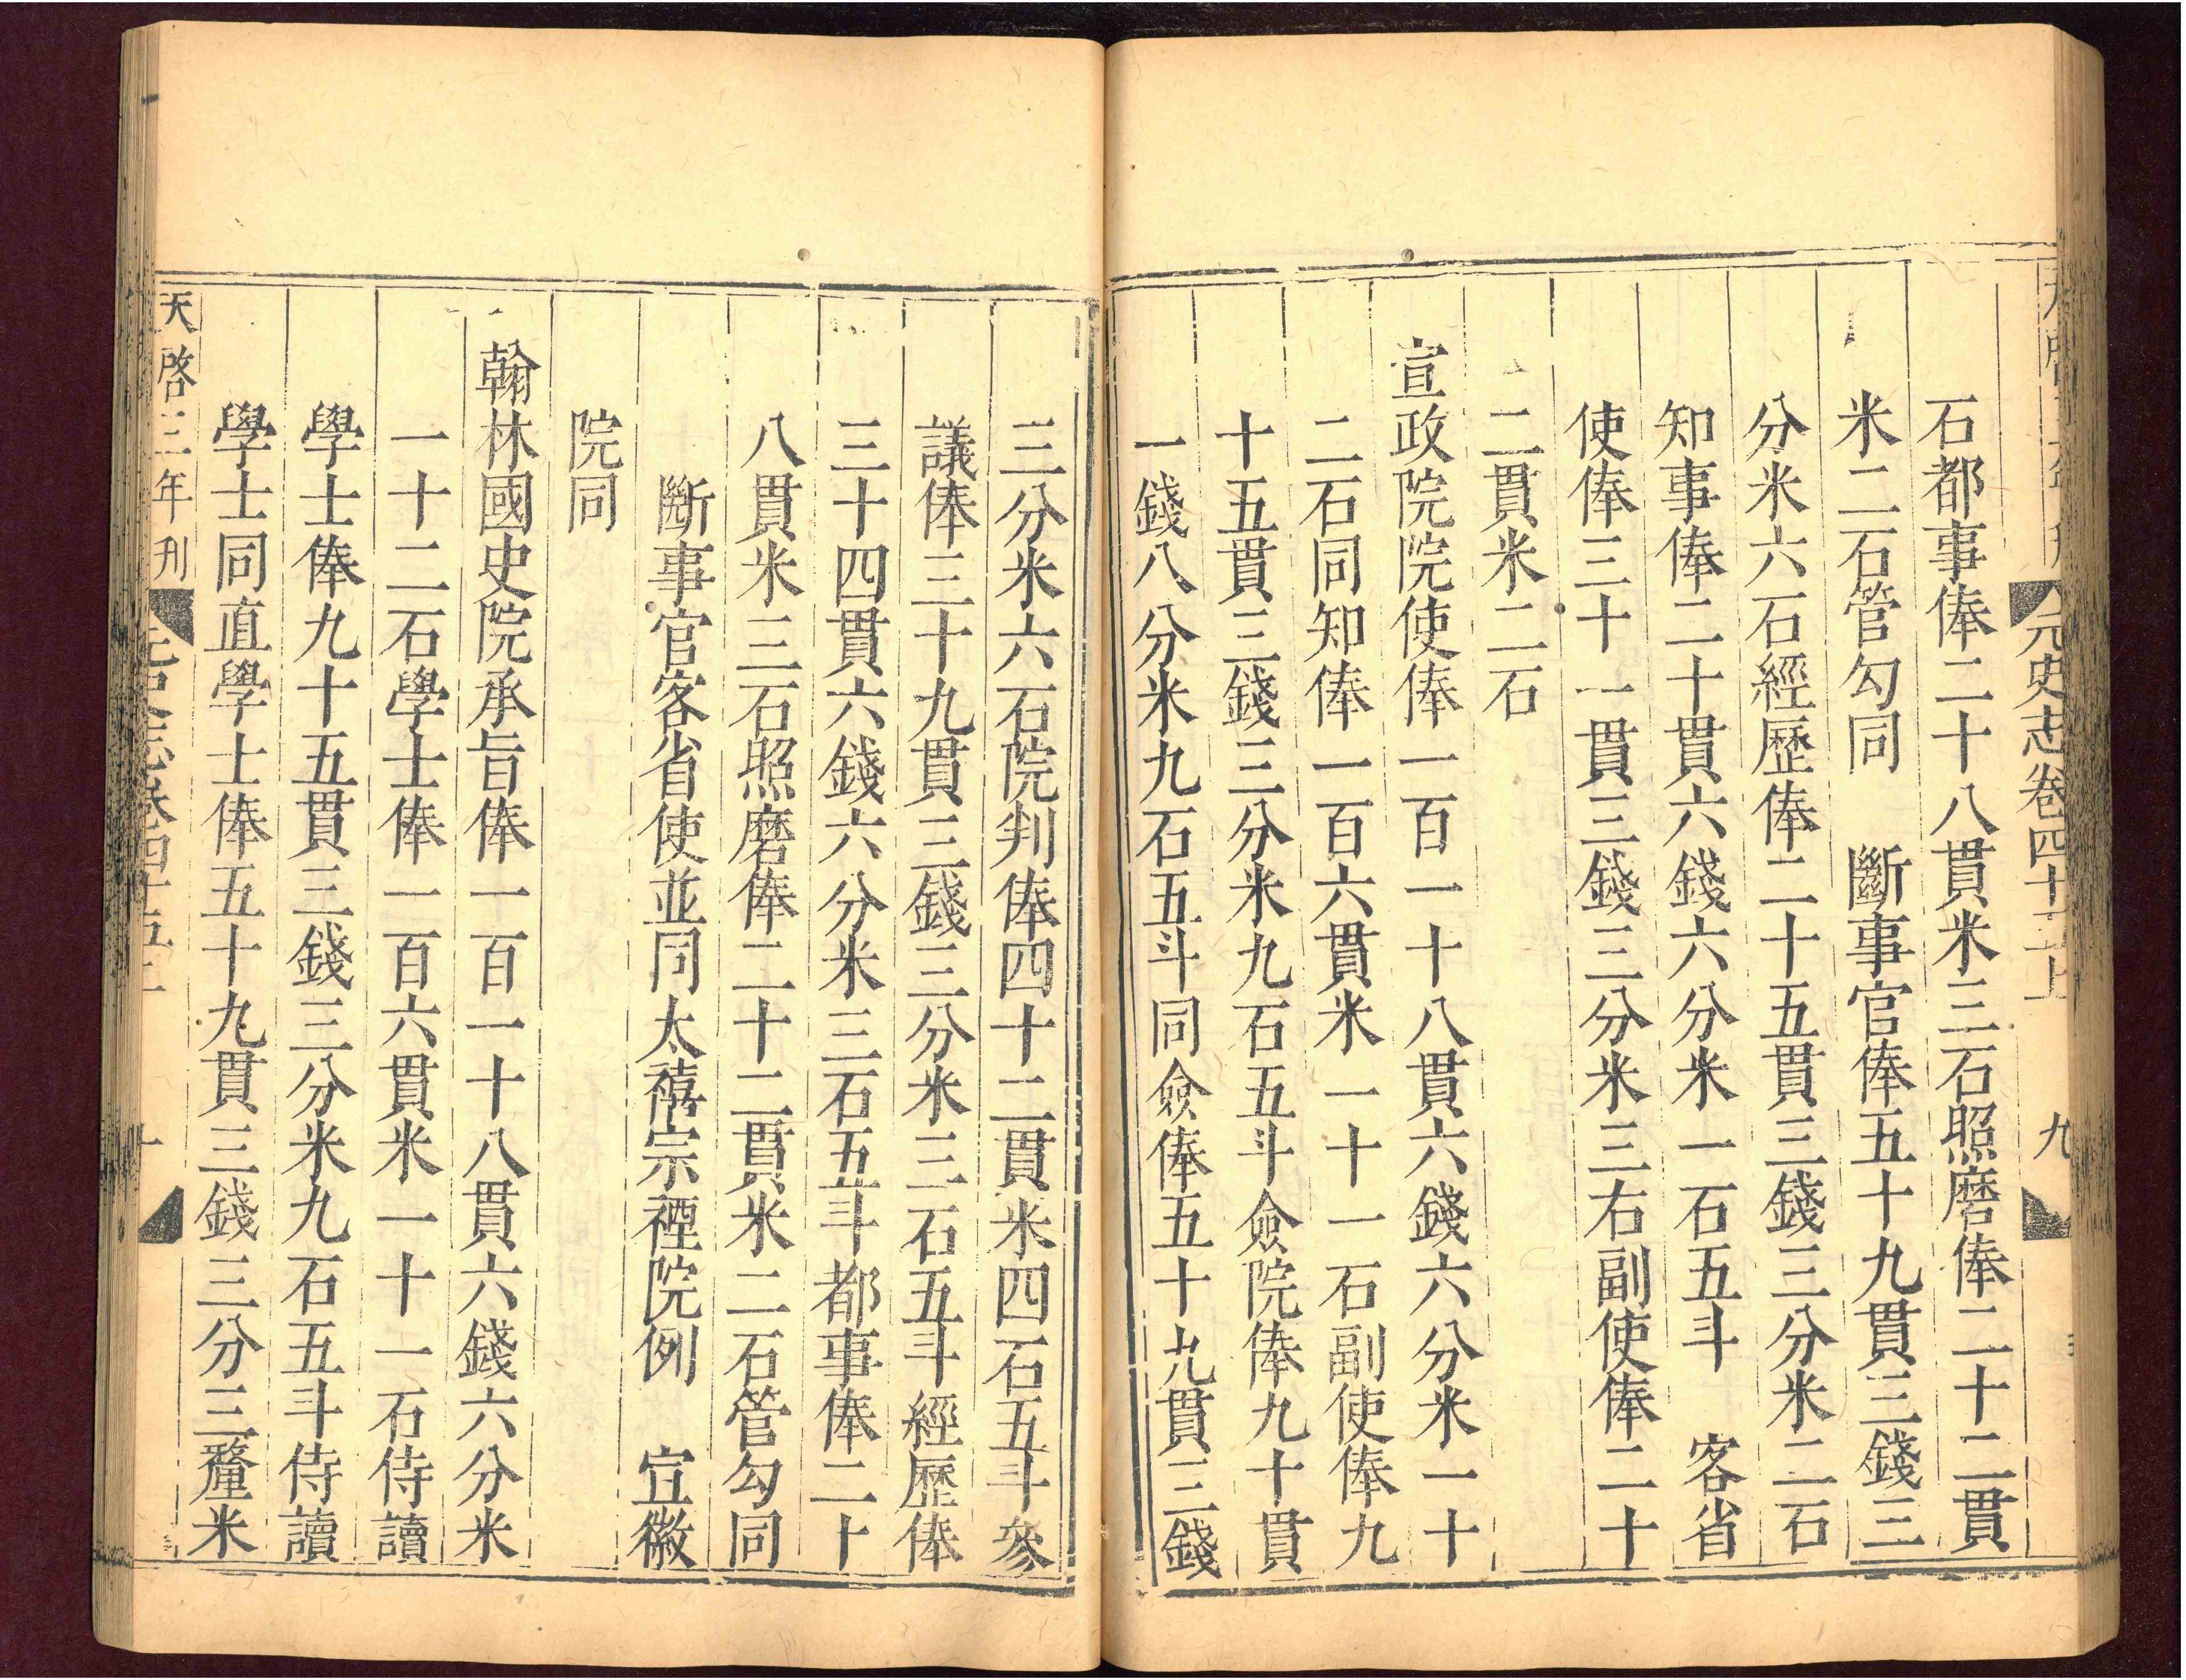 元史志卷四十五上
九
石都事俸二十八貫米三石照磨俸二十二貫
米二石管勾同 斷事官俸五十九貫三錢三
分米六石經歷俸二十五貫三錢三分米二石
知事俸二十貫六錢六分米一石五斗 客省
使俸三十一貫三錢三分米三右副使俸二十
二貫米二石
宣政院院使俸一百一十八貫六錢六分米一十
二石同知俸一百六貫米一十一石副使俸九
十五貫三錢三分米九石五斗僉院俸九十貫
一錢八分米九石五斗同僉俸五十九貫三錢
三分米六石院判俸四十二貫米四石五斗參
議俸三十九貫三錢三分米三石五斗經歷俸
三十四貫六錢六分米三石五斗都事俸二十
八貫米三石照磨俸二十二貫米二石管勾同
斷事官客省使並同太禧宗禋院例 宣徽
院同
翰林國史院承旨俸一百一十八貫六錢六分米
一十二石學士俸一百六貫米一十一石侍讀
學士俸九十五貫三錢三分米九石五斗侍讀
學士同直學士俸五十九貫三錢三分三釐米
天啓三年刊